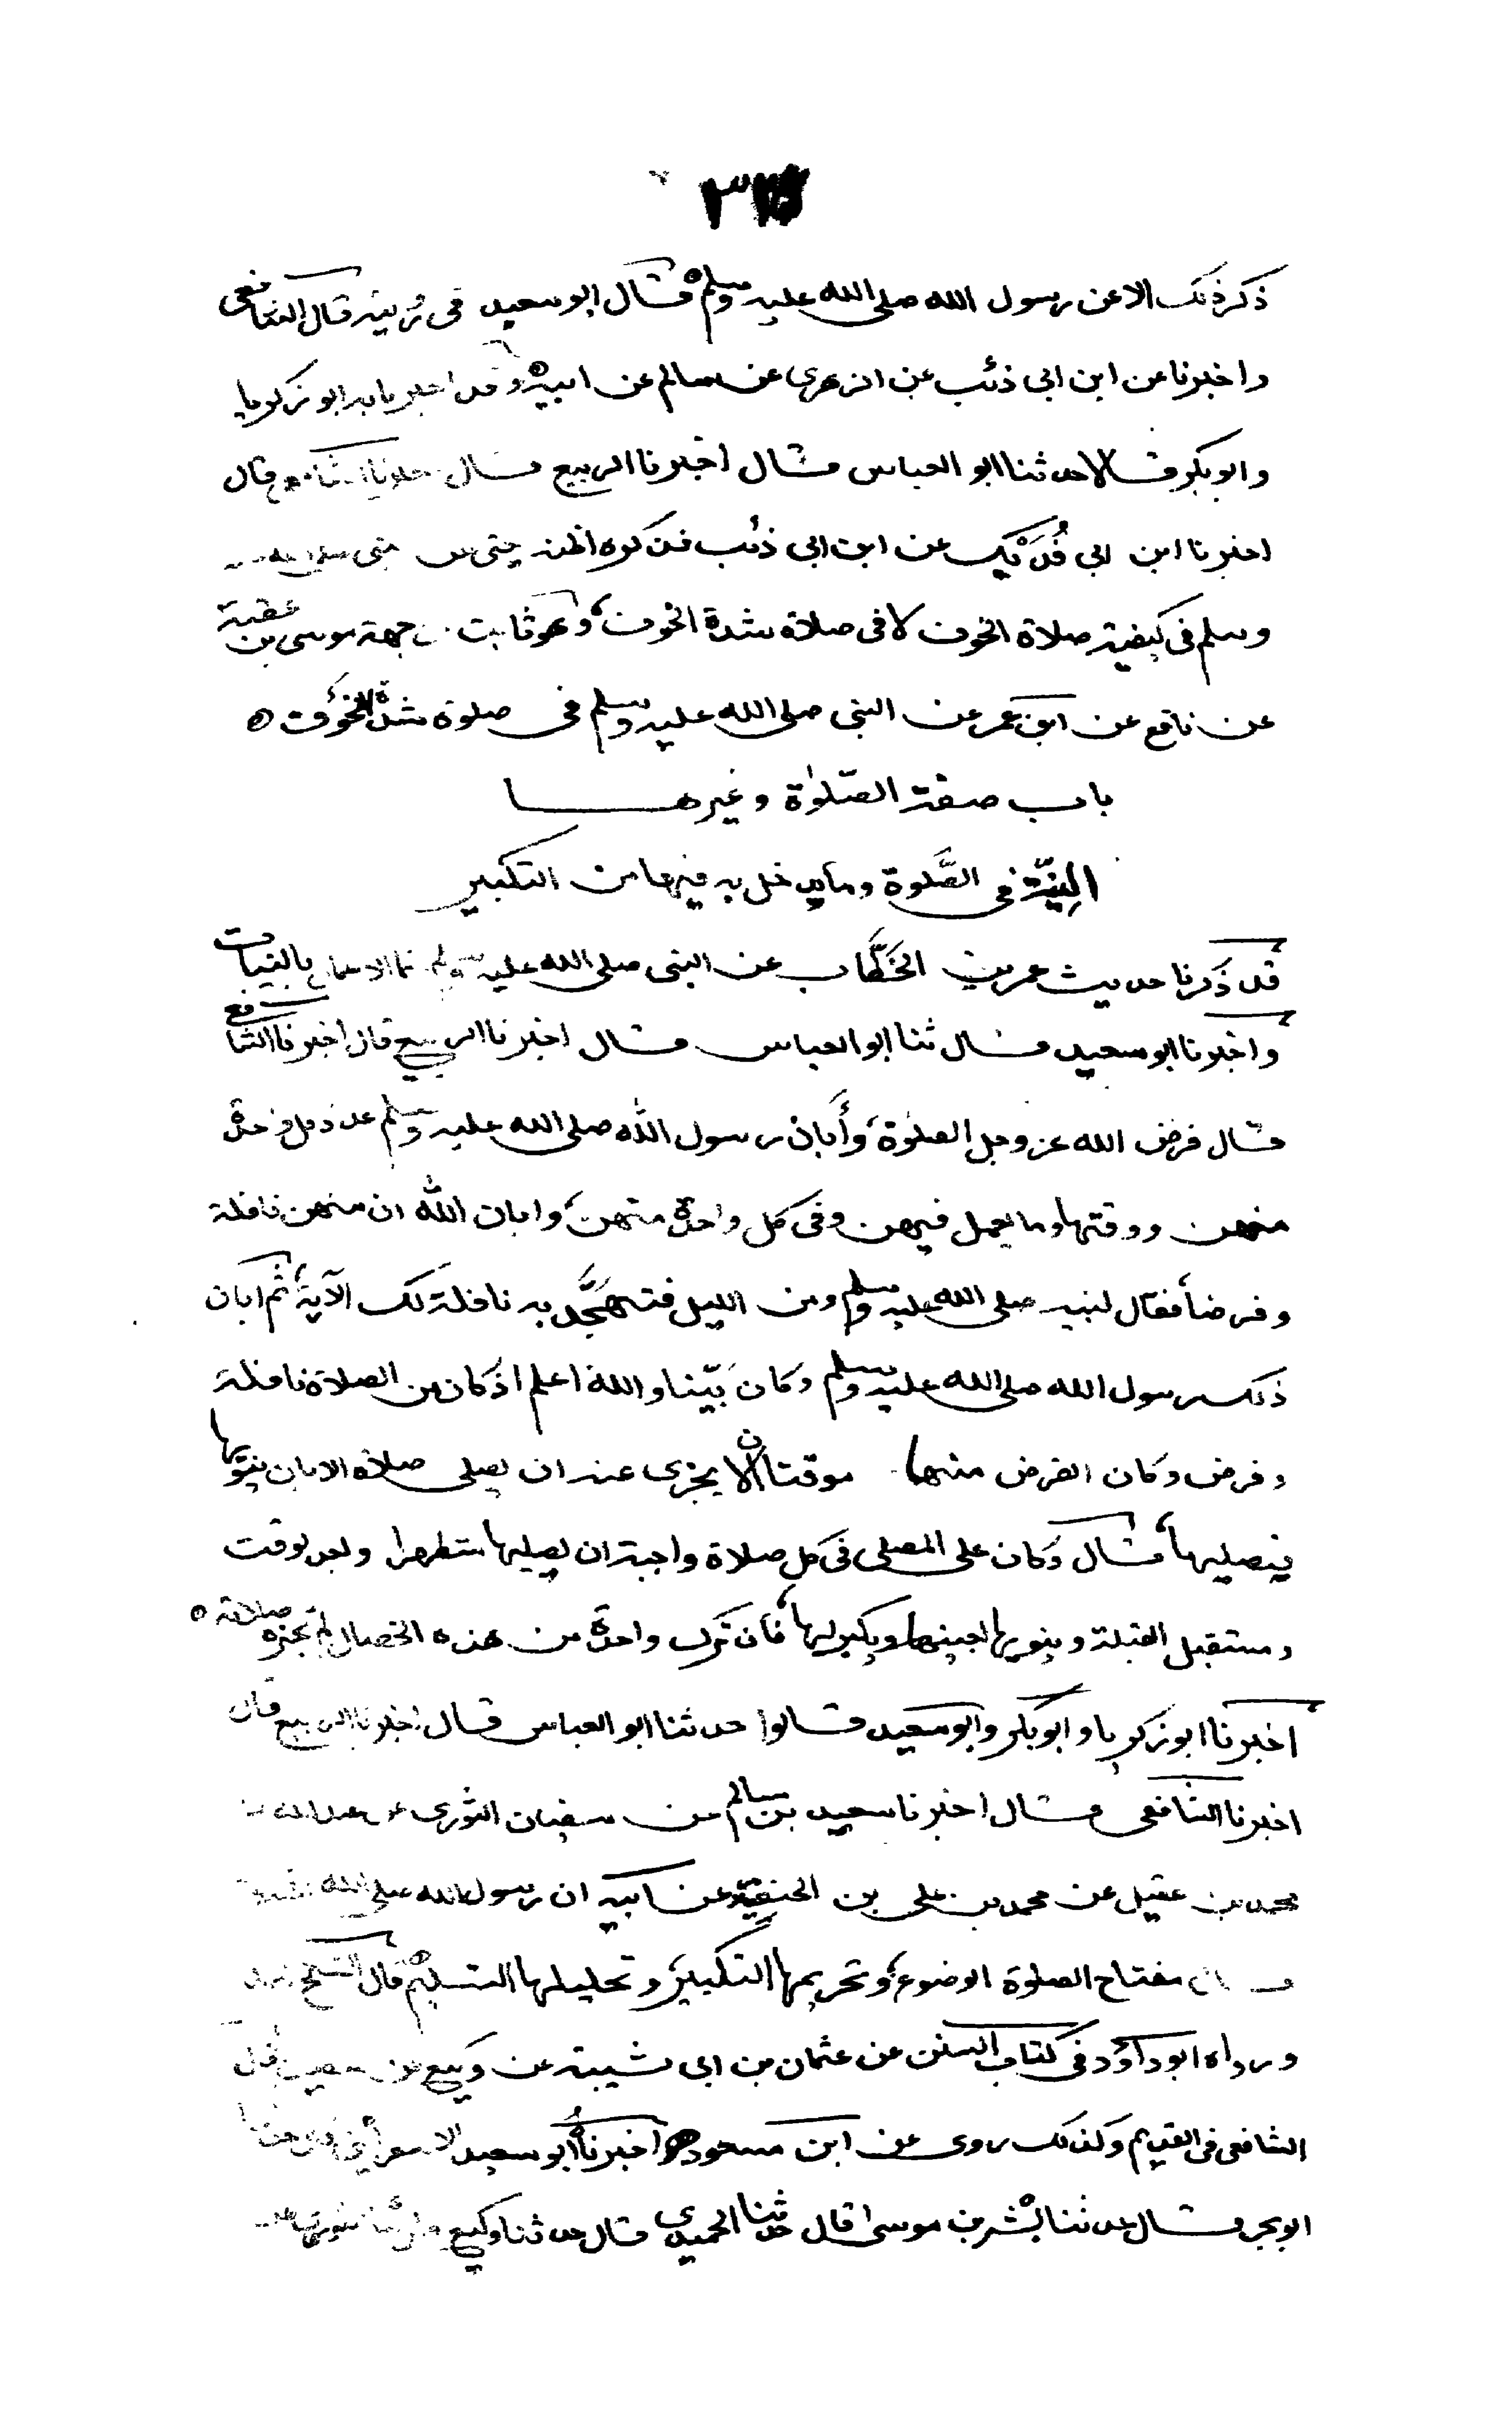 ذكر ذلك الا عن رسول الله صلى الله عليه وسلم ه قال ابو سعيد فى روايته قال الشافعى
واخبرنا عن ابن ابى ذئب عن الزهرى عن سالم عن ابيه ه وقد اخبرنا به ابو زكريا
وابو بكر قالا حدثنا ابو العباس قال اخبرنا الربيع قال اخبرنا الشافعى قال
اخبرنا ابن ابى فُدَيْك عن ابن ابى ذئب فذكره
وسلم فى كيفية صلاة الخوف لا فى صلاة شدة الخوف، وهو ثابت من جهة موسى بن عقبة
عن نافع عن ابن عمر عن النبى صلى الله عليه وسلم فى صلوة شدة الخوف ه
باب صفة الصّلوٰة وغيرها
النِيّة فى الصَّلوة وما يدخل به فيها من التكبير
قد ذكرنا حديث عمر بن الخَطَّاب عن النبى صلى الله عليه وسلم انما الاعمال بالنيات
واخبرنا ابو سعيد قال ثنا ابو العباس قال اخبرنا الربيع قال اخبرنا الشافعى
قال فرض الله عز وجل الصلوٰة، وأَبان رسول الله صلى الله عليه وسلم عدد كل واحدة
منهن ووقتها وما يعمل فيهن وفى كل واحدة منهن، وابان الله ان منهن نافلة
وفرضاً فقال لنبيه صلى الله عليه وسلم ومن الليل فتهجَّد به نافلة لك الآية، ثم ابان
ذلك رسول الله صلى الله عليه وسلم وكان بَيّنا والله اعلم اذ كان من الصلاة نافلة
وفرض وكان الفرض منها موقتا ان لا يجزى عنه ان يصلى صلاة الا بان ينويها
فيصليها، قال وكان على المصلى فى كل صلاة واجبة ان يصليها متطهرا وبعد الوقت
ومستقبل القبلة وينويها بعينها ويكبر لها، فان ترك واحدة من هذه الخصال لم تجزه صلاته ه
اخبرنا ابو زكريا وابو بكر وابو سعيد قالوا حدثنا ابو العباس قال اخبرنا الربيع قال
اخبرنا الشافعى قال اخبرنا سعيد بن سالم عن سفيان الثورى عن عبد الله بن
محمد بن عقيل عن محمد بن على بن الحنفِيّة عن ابيه ان رسول الله صلى الله عليه
قال مفتاح الصلوة الوضوء، وتحريمها التكبير، وتحليلها التسليم ه قال الشيخ احمد
ورواه ابو داود فى كتاب السنن عن عثمان بن ابى شيبة عن وكيع عن سفيان قال
الشافعى فى القديم وكذلك روى عن ابن مسعود ه اخبرناه ابو سعيد الاسفرائنى
ابو بحر قال حدثنا بشر بن موسى قال حدثنا الحميدى قال حدثنا وكيع